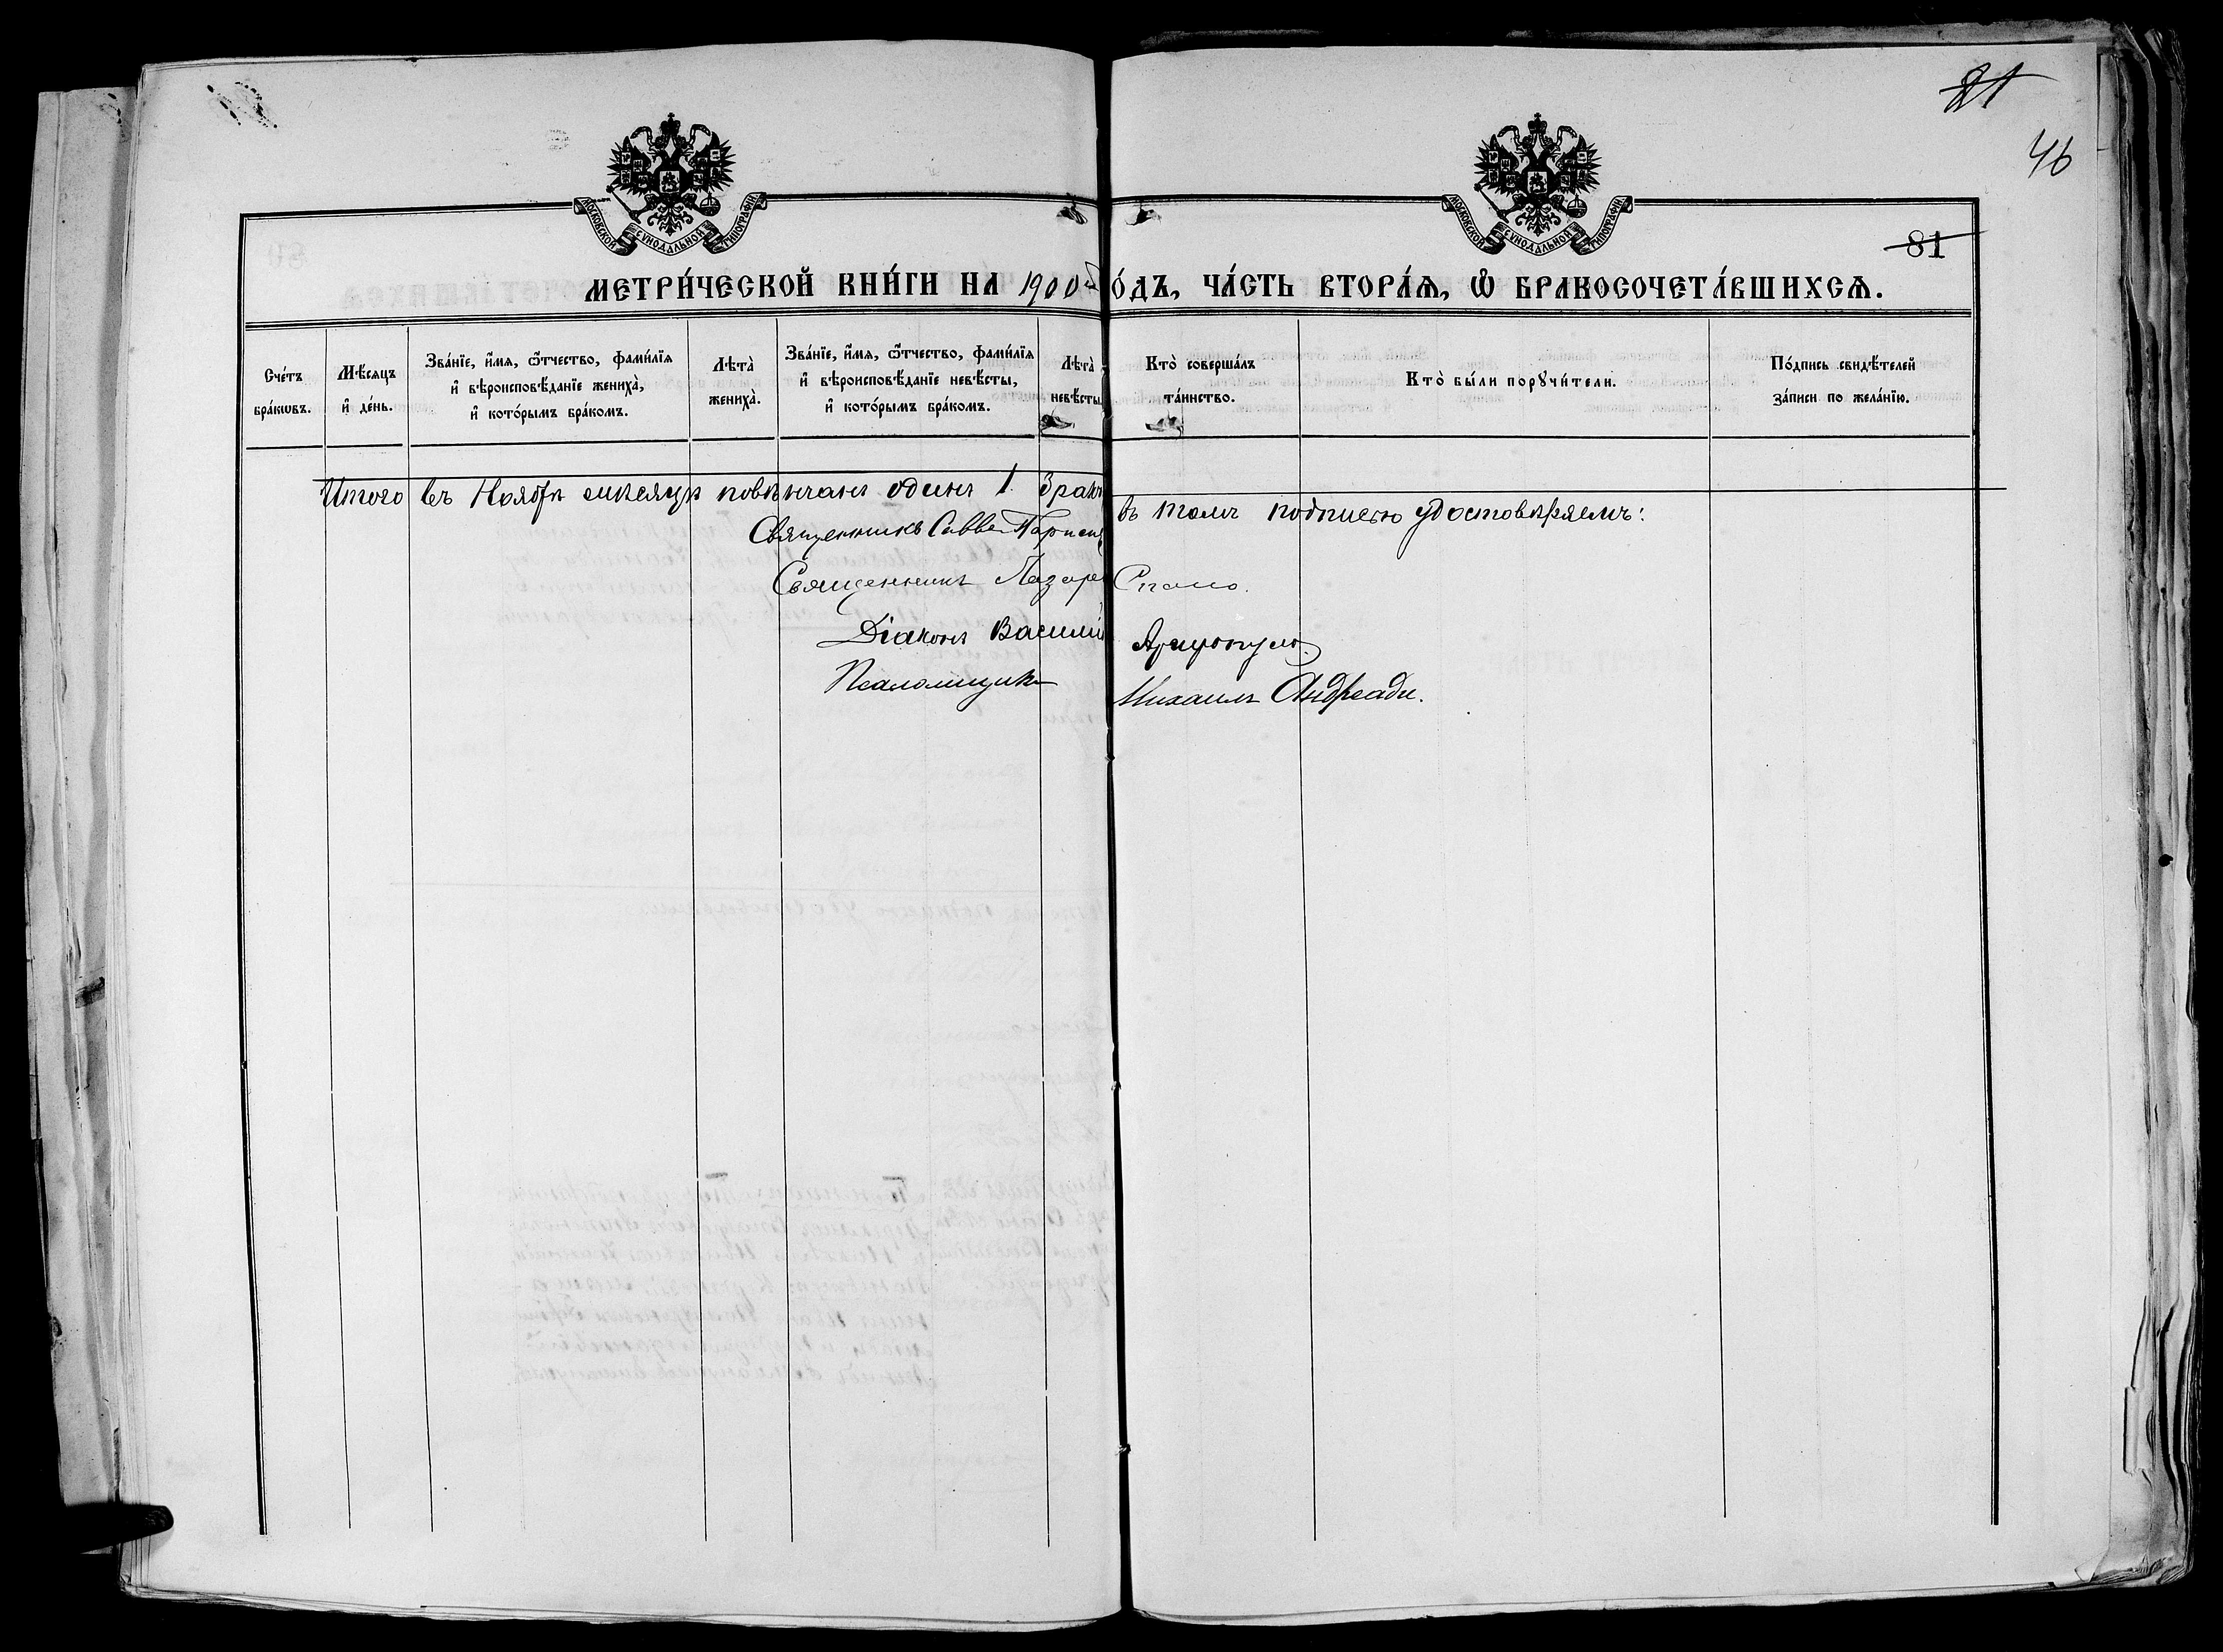 21
46
МОСКОВСКОЙ СѴНОДАЛЬНОЙ ТИПОГРАФІИ
МОСКОВСКОЙ СѴНОДАЛЬНОЙ ТИПОГРАФІИ
81
МЕТРИ́ЧЕСКОЙ КНИ́ГИ НА 1900 й ГО́ДЪ, ЧА́СТЬ ВТОРА́Ѧ, Ѡ҆ БРАКОСОЧЕТА́ВШИХСѦ.
Сче́тъ бра́кѡвъ.
Мѣ́сяцъ и҆ де́нь.
Зва́нїе, и҆́мя, ѻ҆́тчество, фами́лїя и҆ вѣроисповѣ́данїе жениха̀, и҆ кото́рымъ бра́комъ.
Лѣта̀ жениха̀.
Зва́нїе, и҆́мя, ѻ҆́тчество, фами́лїя и҆ вѣроисповѣ́данїе невѣ́сты, и҆ кото́рымъ бра́комъ.
Лѣта̀ невѣ́сты.
Кто̀ соверша́лъ та́инство.
Кто̀ бы́ли порꙋчи́тели.
По́дпись свидѣ́телей за́писи по жела́нїю.
Итого въ Ноябрѣ мѣсяцѣ повѣнчанъ одинъ 1. бракъ въ томъ подписью удостовѣряемъ:
Священникъ Савва
Священникъ Лазарь Спано.
Діаконъ Василій
Псаломщикъ Михаилъ Андреади.